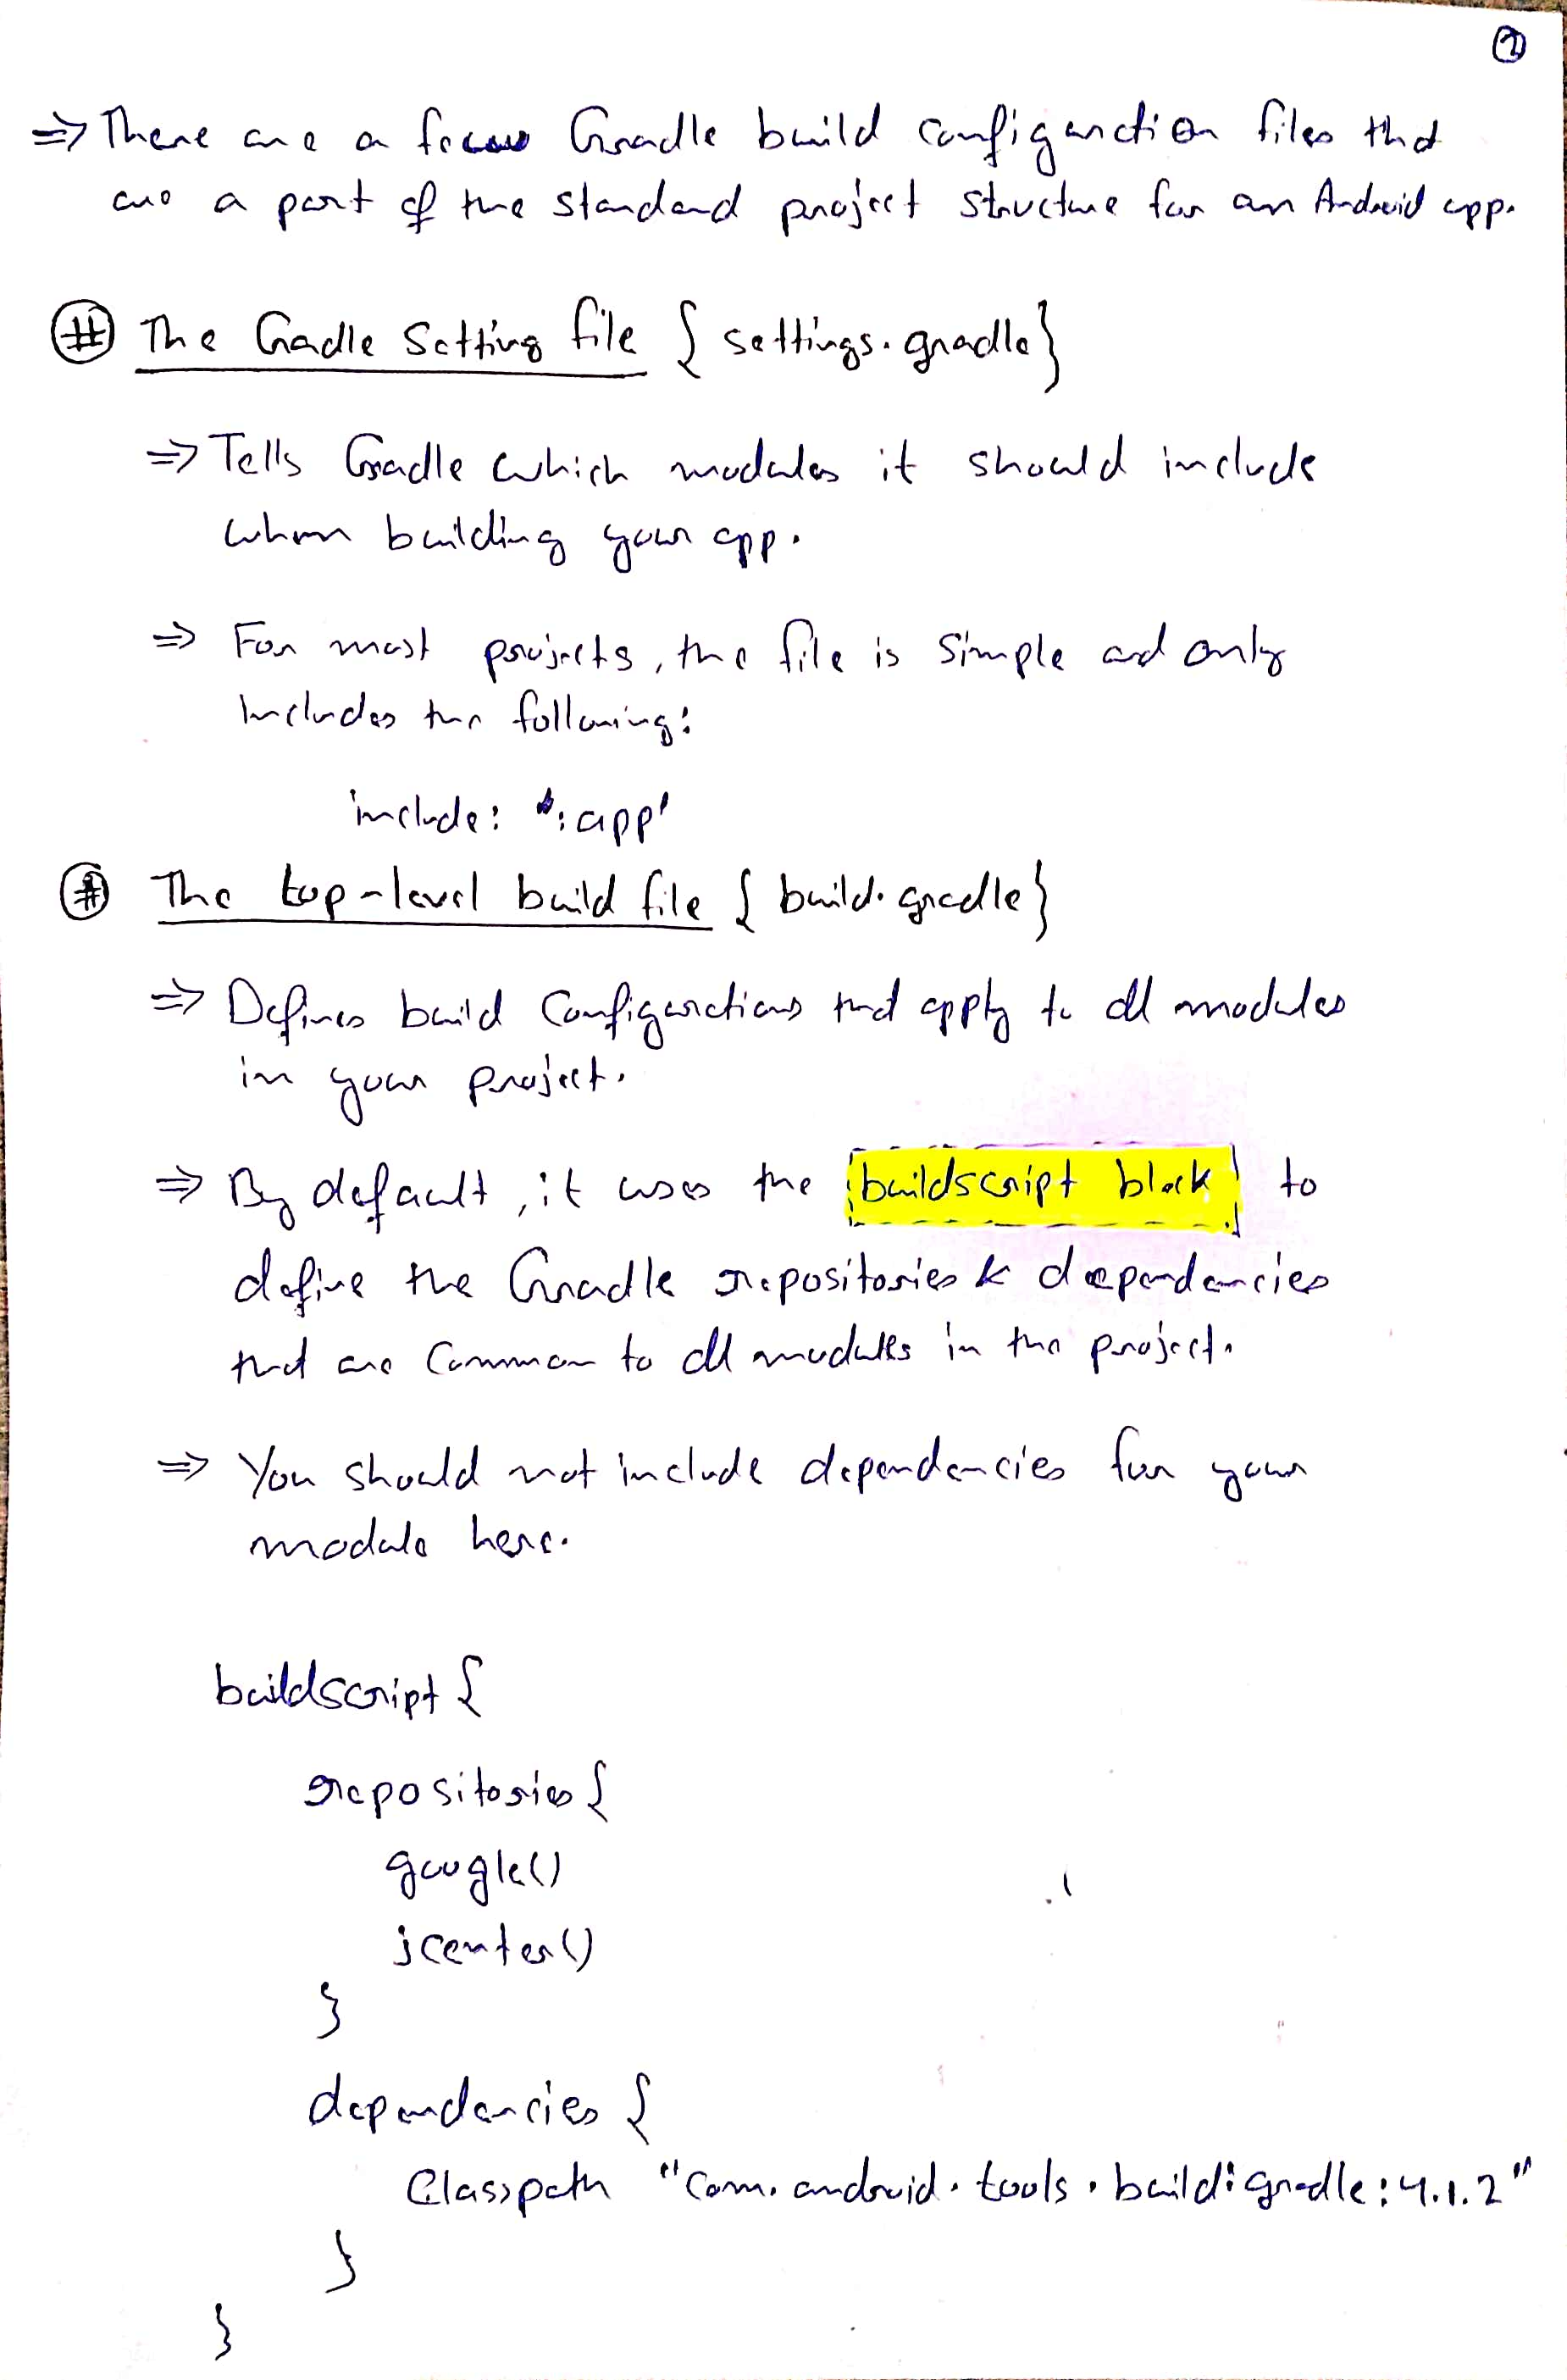 ②
⇒ There are a few Gradle build configuration files that
are a part of the standard project structure for an Android app.
# The Gradle Setting file { settings.gradle}
⇒ Tells Gradle which modules it should include
when building your app.
⇒ For most projects, the file is simple and only
includes the following:
include: ':app'
# The top-level build file { build.gradle}
⇒ Defines build configurations that apply to all modules
in your project.
⇒ By default, it uses the buildscript block to
define the Gradle repositories & dependencies
that are common to all modules in the project.
⇒ You should not include dependencies for your
module here.
buildscript {
repositories {
google()
jcenter()
}
dependencies {
Classpath "com.android.tools.build:gradle:4.1.2"
}
}